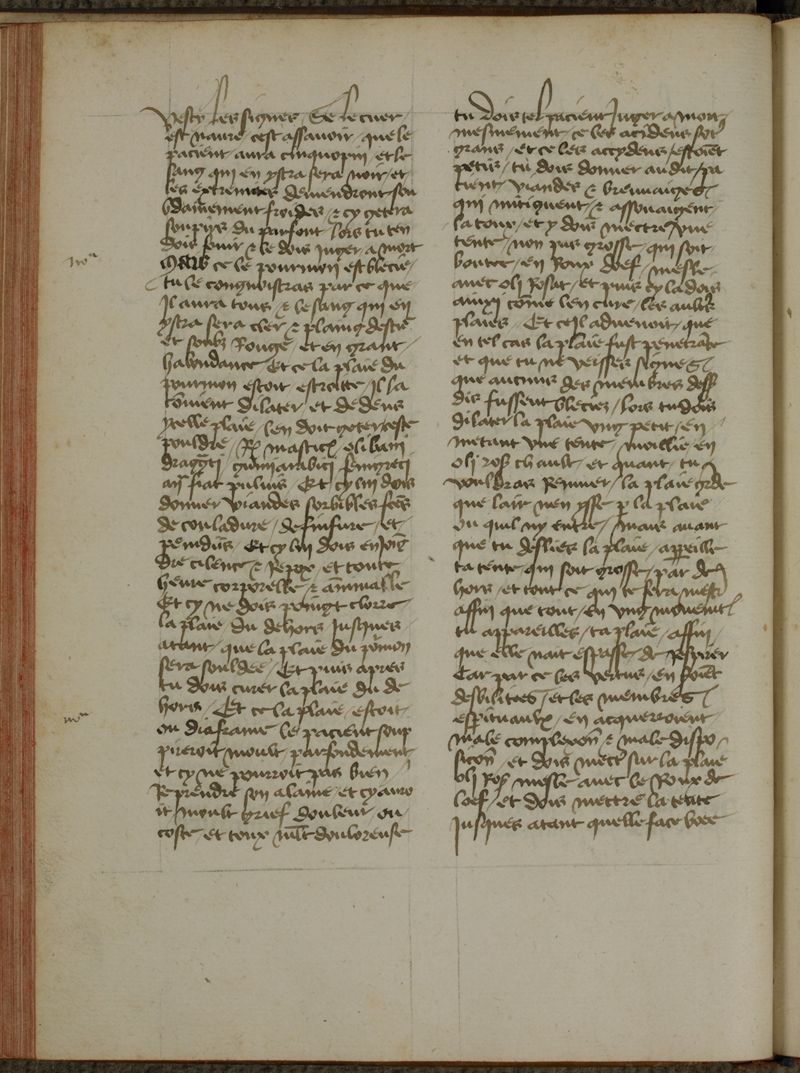 Vesty les signes / Se le cuer /
est navré cest assavoir / que le
pacient aura cinquopin / et le
sang qui en ystra sera noir / et
les extremites deviendront sou
bdainement froides / & cy getera
souspirs du parfont / lors tu ten
dois fouir / & le dois juger a mort
Mais ce le poumon est blecié /
tu le congnoistras par ce que /
Il aura tous / & le sang qui en
ystra sera cler / & plain descu
et soubz Rouge / et en grant /
habondance / Et ce la plaie du
poumon estoit estroitte / Il la
convient dilater / et dedens
ycelle plaie / len doit geter ceste
pouldre / Rx mastic / olibani
draggti / gumi arabici / fenigreci
an fiat pulvis / Et cy luy dois
donner viandes sorbibles / fees
de couladure / de furfure / et
penidiis / Et cy luy dois enjoin
dre cilence / & Repox / et toute
heure corporelle / & animalle
Et cy ne dois poingt clorre
la plaie du dehors Jusques /
atant / que la plaie du pomon
sera souldee / Et puis apres
tu dois curer la plaie du de
hors / Et ce la plaie / estoit
ou diaframe le pacient soup
pireroit moult / parfondement
et cy ne pourroit pas bien /
Reprendre son alaine / et cy auro
it moult grief douleur / ou
coste / et toux mlt doulereuse
tu dois tel pacient Juger a mort /
mesmement / ce les acidens sot
grans / et ce les accydens / estoiet
petis / tu dois donner audit / pa
cient / viandes & breuvaiges
qui mitiguent / & assouaigent
la toux / et y dois mectre une
tente / non pas grosse / qui soit
boutee / en Roux doef / mesle
avec oli Rosat / et puis cy la dois
ainxi come len cure / les aultres
plaies / Et ce il advenoit / que
en tel cas la plaie fust penetrate
et que tu ne veisses signes
que aucuns des membres dess
dis fussent bleciez / lors tu dois
dilater la plaie ung petit / en /
metant une tente / moillie en
oli ros chault / et quant / tu
vouldras Remuer / la plaie grde
que lair nen ysse p la plaie
ou quil ny entre / mais avant
que tu deslies la plaie / appeille
ta tente / qui soit grosse / par de
hors / et tout ce qui te fera mesti
affin que tout / en ung movemet
tu appareilles / ta plaie / affin /
que elle nait espasse / de Respirer
Car par ce les vertus / en soiet
desbilitees / et les membres
espirituaulx / en acquerroient
male complexon / & male dispo /
sicon / et dois mect sur la plaie
oli Ros mesle avec le Roux de
loef / et dois mettre la tente
Jusques atant quelle face boee
noa
noa